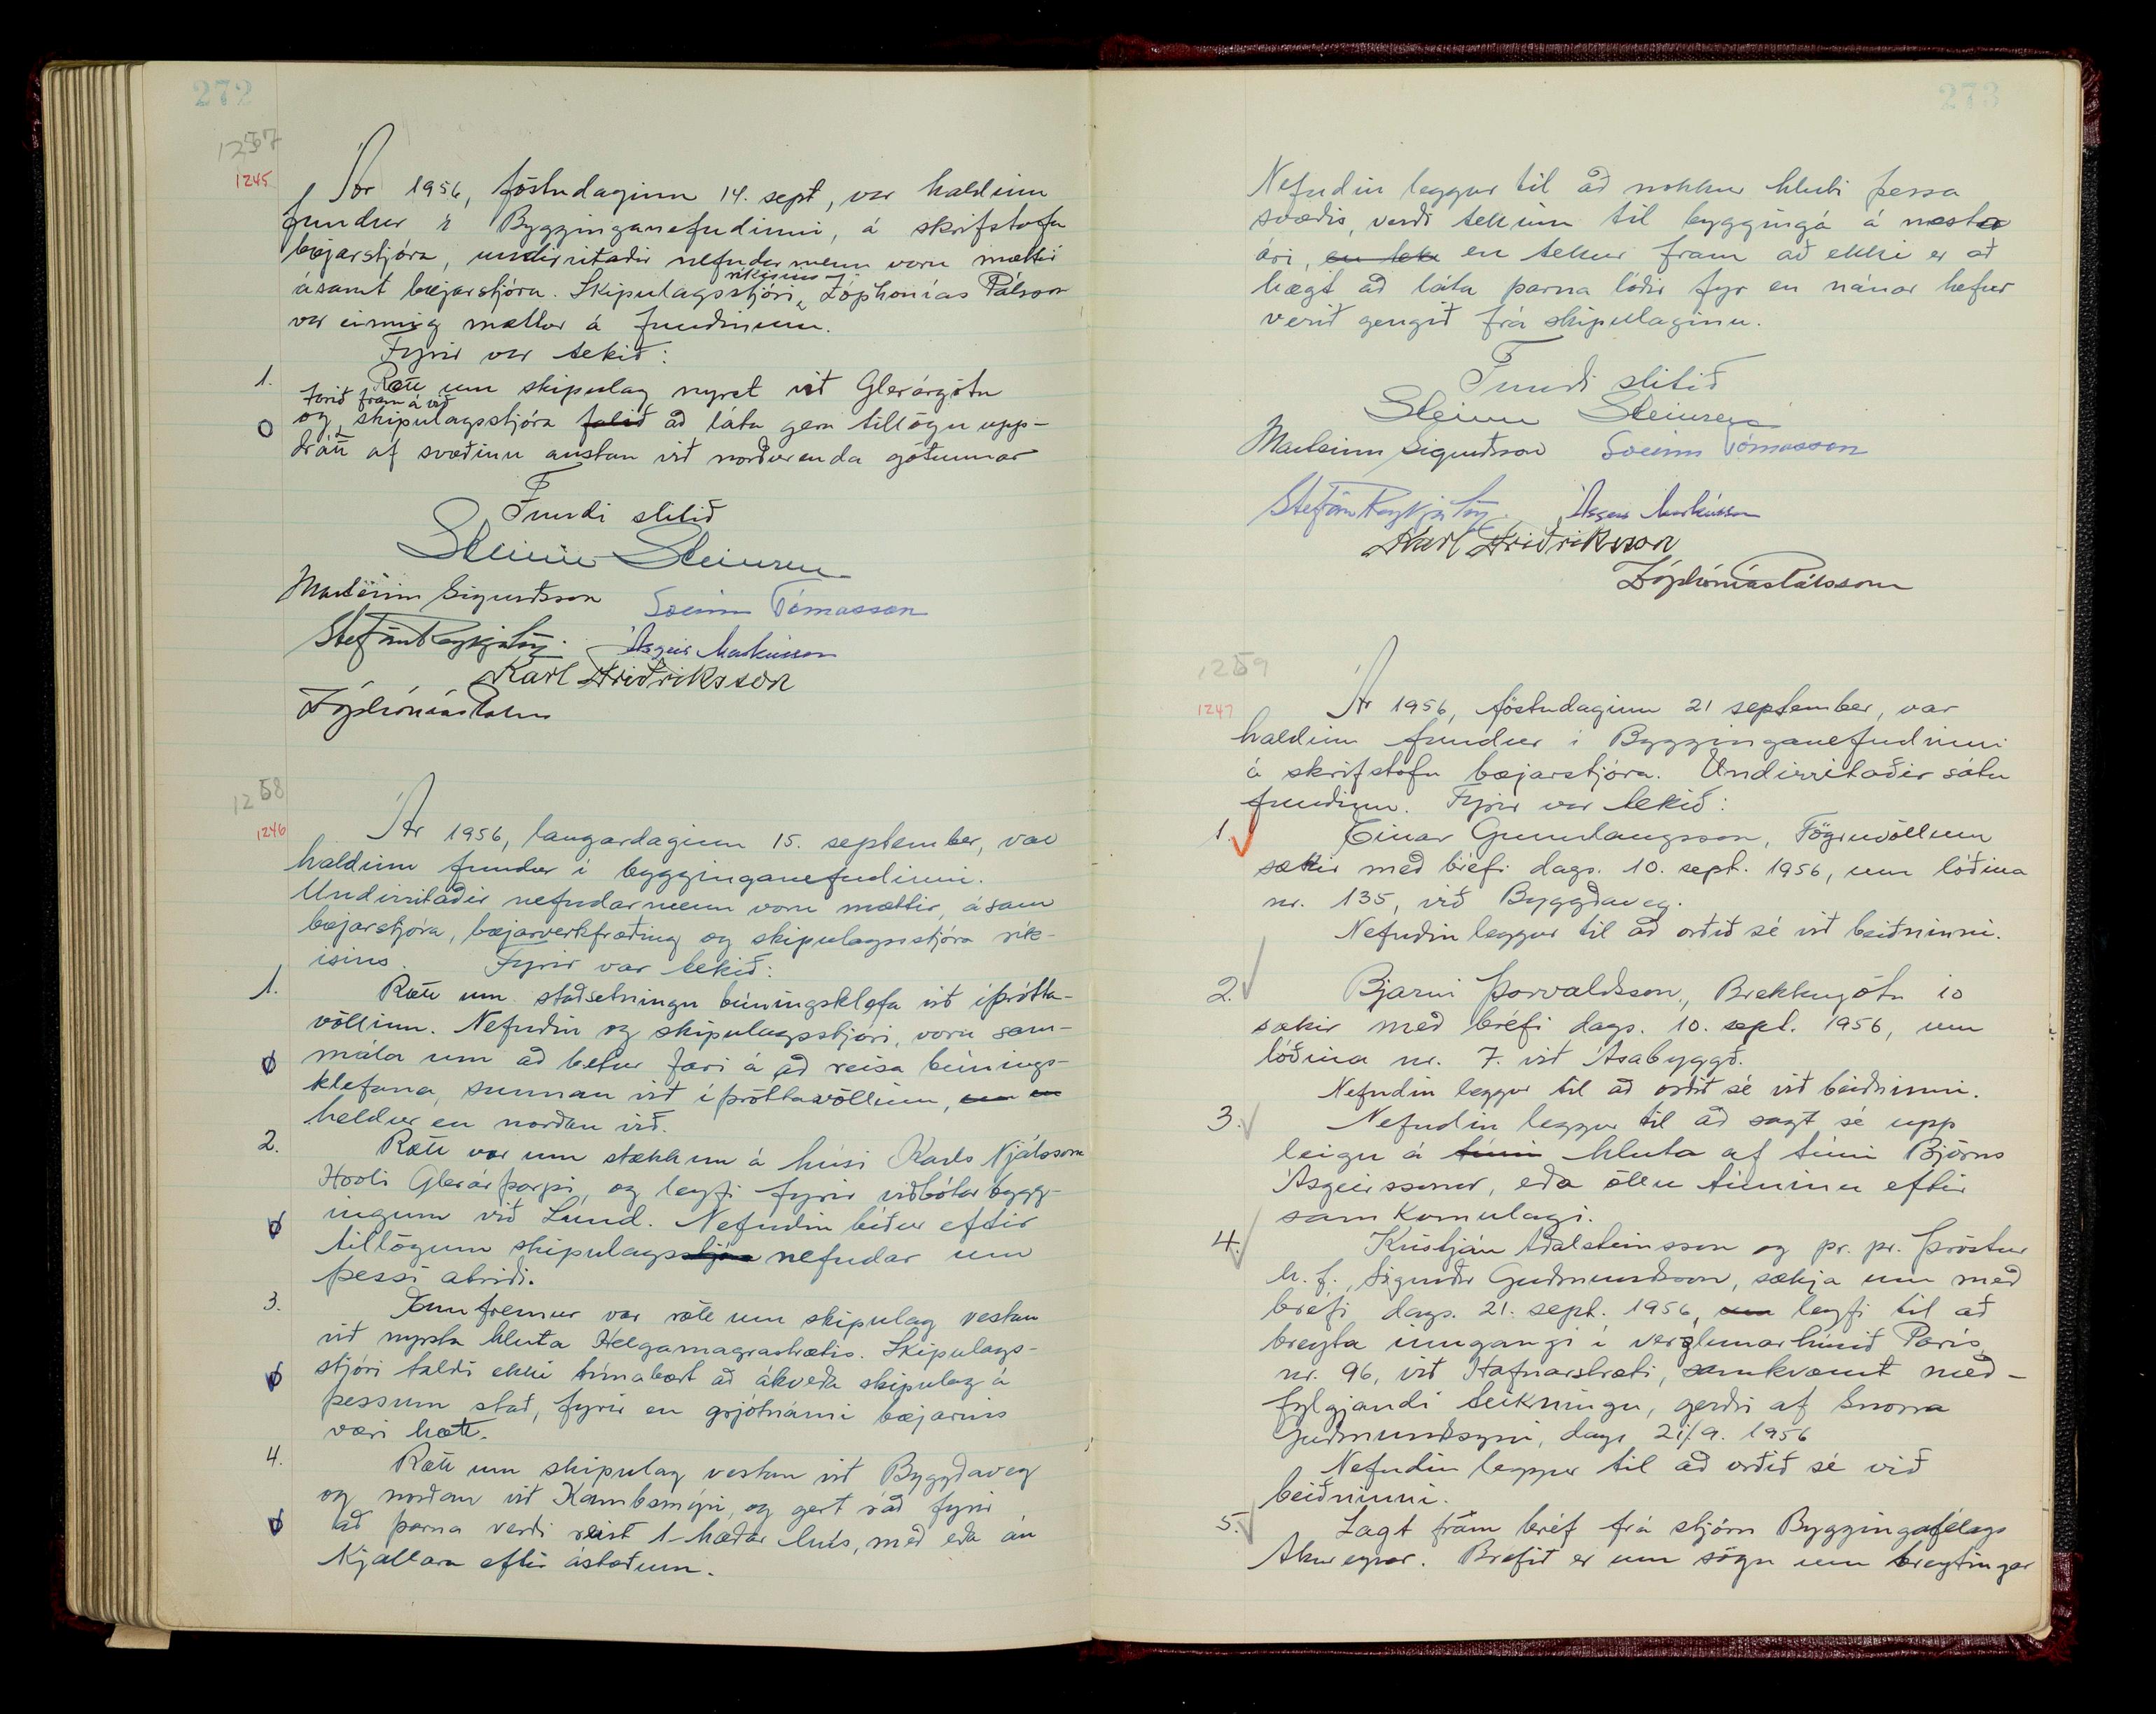 272
1257
1245
Ár 1956, föstudaginn 14. sept, var haldinn
fundur í Bygginganefndinni, á skrifstofu
bæjarstjóra, undirritaðir nefndarmenn voru mættir
ríkisins
ásamt bæjarstjóra. Skipulagsstjóri Zóphonías Pálsson
var einnig mættur á fundinum.
Fyrir var tekið:
1. Rætt um skipulag nyrst við Glerárgötu
farið fram á við
og skipulagsstjóra falið að láta gera tillögu upp-
drátt af svæðinu austan við norðurenda götunnar
Fundi slitið
Steinn Steinsen
Marteinn Sigurðsson Sveinn Tómasson
Stefán Reykjalín. Ásgeir Markússon
Karl Friðriksson
Zóphónías Pálsson
1258
1246
Ár 1956, laugardaginn 15. september, var
haldinn fundur í bygginganefndinni.
Undirritaðir nefndarmenn voru mættir, ásam
bæjarstjóra, bæjarverkfræðing og skipulagsstjóra rík-
isins. Fyrir var tekið:
1. Rætt um staðsetningu búningsklefa við íþrótta-
völlinn. Nefndin og skipulagsstjóri, voru sam-
mála um að betur fari á að reisa búnings-
klefana, sunnan við íþróttavöllinn, en en
heldur en norðan við.
2. Rætt var um stækkun á húsi Karls Njálssonar
Hvoli Glerárþorpi, og leyfi fyrir viðbótar bygg-
ingum við Lund. Nefndin bíður eftir
tillögum skipulagsstjóra nefndar um
þessi atriði.
3. Ennfremur var rætt um skipulag vestan
við nyrsta hluta Helgamagrastrætis. Skipulags-
stjóri taldi ekki tímabært að ákveða skipulag á
þessum stað, fyrir en grjótnámi bæjarins
væri hætt.
4. Rætt um skipulag vestan við Byggðaveg
og norðan við Kambsmýri, og gert ráð fyrir
að þarna verði reist 1-hæðar hús, með eða án
kjallara eftir ástæðum.
273
Nefndin leggur til að nokkur hluti þessa
svæðis, verði tekinn til bygginga á næsta
ári, en tek en tekur fram að ekki er að
hægt að láta þarna lóðir fyr en nánar hefur
verið gengið frá skipulaginu.
Fundi slitið
Steinn Steinsen
Marteinn Sigurðsson Sveinn Tómasson
Stefán Reykjalín. Ásgeir Markússon
Karl Friðriksson
Zóphónías Pálsson
1259
1247
Ár 1956, föstudaginn 21 september, var
haldinn fundur í Bygginganefndinni
á skrifstofu bæjarstjóra. Undirritaðir sátu
fundinn. Fyrir var tekið:
1. Einar Gunnlaugsson, Fögruvöllum
sækir með bréfi dags. 10. sept. 1956, um lóðina
nr. 135, við Byggðaveg.
Nefndin leggur til að orðið sé við beiðninni.
2. Bjarni Þorvaldsson, Brekkugötu 10
sækir með bréfi dags. 10. sept. 1956, um
lóðina nr. 7. við Ásabyggð.
Nefndin leggur til að orðið sé við beiðninni.
3. Nefndin leggur til að sagt sé upp
leigu á túni hluta af túni Björns
Ásgeirssonar, eða öllu túninu eftir
samkomulagi.
4. Kristján Aðalsteinsson og pr. pr. Þröstur
h.f., Sigurður Guðmundsson, sækja um með
bréfi dags. 21. sept. 1956, um leyfi til að
breyta inngangi í verzlunarhúsið París,
nr. 96, við Hafnarstræti, samkvæmt með-
fylgjandi teikningu, gerðri af Snorra
Guðmundssyni, dags 21/9. 1956
Nefndin leggur til að orðið sé við
beiðninni.
5. Lagt fram bréf frá stjórn Byggingafélags
Akureyrar. Bréfið er um sögn um breytingar